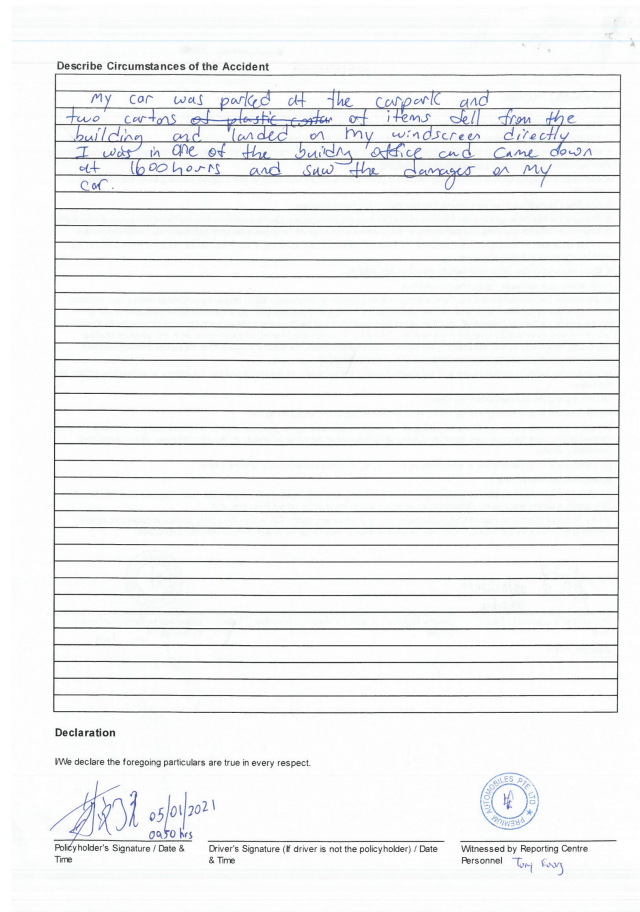 Describe Circumstances of the Accident
My car was parked at the carpark and
two cartons of plastic of items dell from the
building and landed on my windscreen directly
I was in one of the buildny office and came down
at 1600hours and saw the damages on my
car.
Declaration
I/We declare the foregoing particulars are true in every respect.
05/01/2021
0950 hrs
PREMIUM AUTOMOBILES PTE LTD
Policyholder's Signature / Date & Time
Driver's Signature (If driver is not the policyholder) / Date & Time
Witnessed by Reporting Centre Personnel Tony